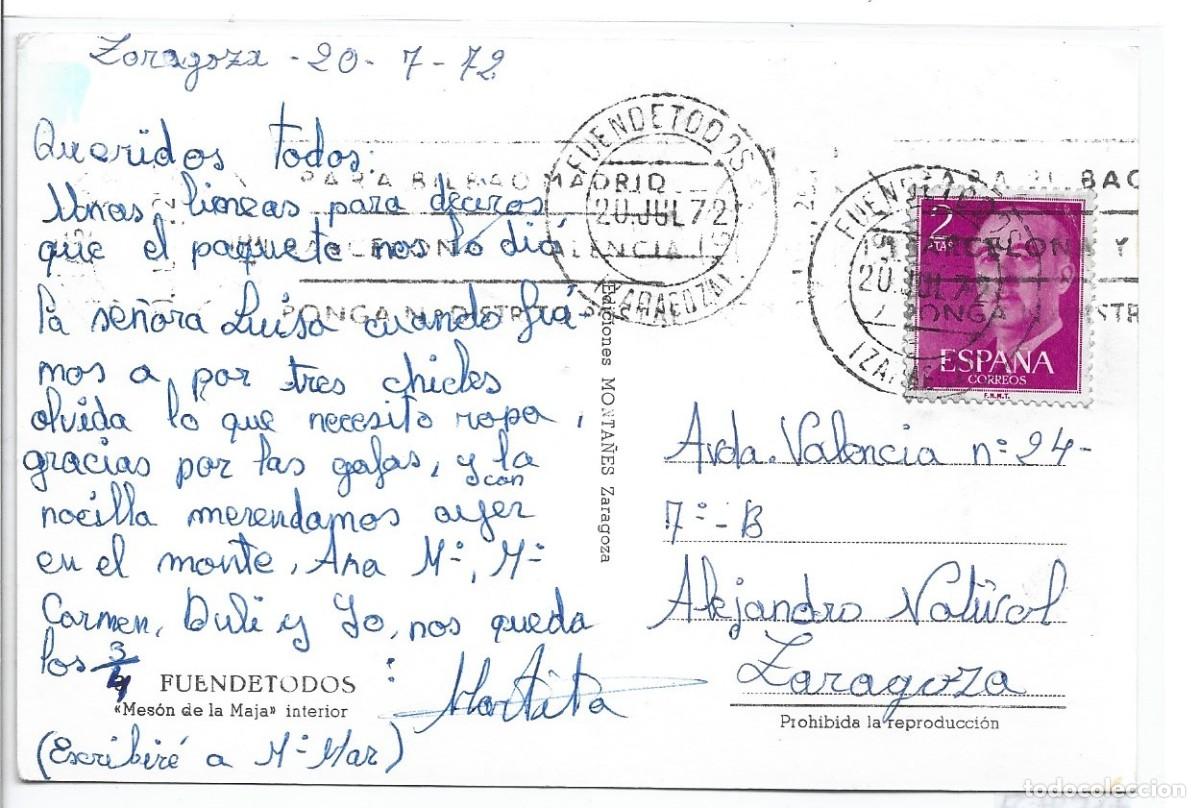 Zaragoza - 20 - 7 - 72
Queridos todos:
Unas lineas para deciros,
que el paquete nos lo dió
la señora Luisa cuando
mos a por tres chicles
olvida lo que necesito ropa,
gracias por las gafas, y la
con
nocilla merendamos ayer
en el monte, Ana Mª, Mª
Carmen, Duli y Yo, nos queda
los 3/4
FUENDETODOS
«Mesón de la Maja» interior
(Escribiré a Mª Mar)
Ediciones MONTAÑES Zaragoza
FUENDETODOS
20 JUL 72
(ZARAGOZA)
PARA BILBAO MADRID
BARCELONA VALENCIA
PONGA Nº DISTR
FUENDETODOS
20 JUL 72
PARA BILBAO
BARCELONA Y
PONGA DISTR
2
PTAS
ESPAÑA
CORREOS
F.N.M.T.
Avda. Valencia nº 24-
7º-B
Alejandro
Zaragoza
Prohibida la reproducción
todocoleccion